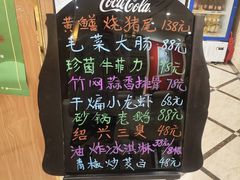 Coca-Cola
黄鳝烧猪尾 138元
毛菜大肠 88元
珍菌牛菲力 78元
竹闷蒜香排骨 78元
干煸小龙虾 68元
砂锅老鹅 88元
绍兴三臭 48元
油炸冰淇淋 38元
青椒炒茭白 48元